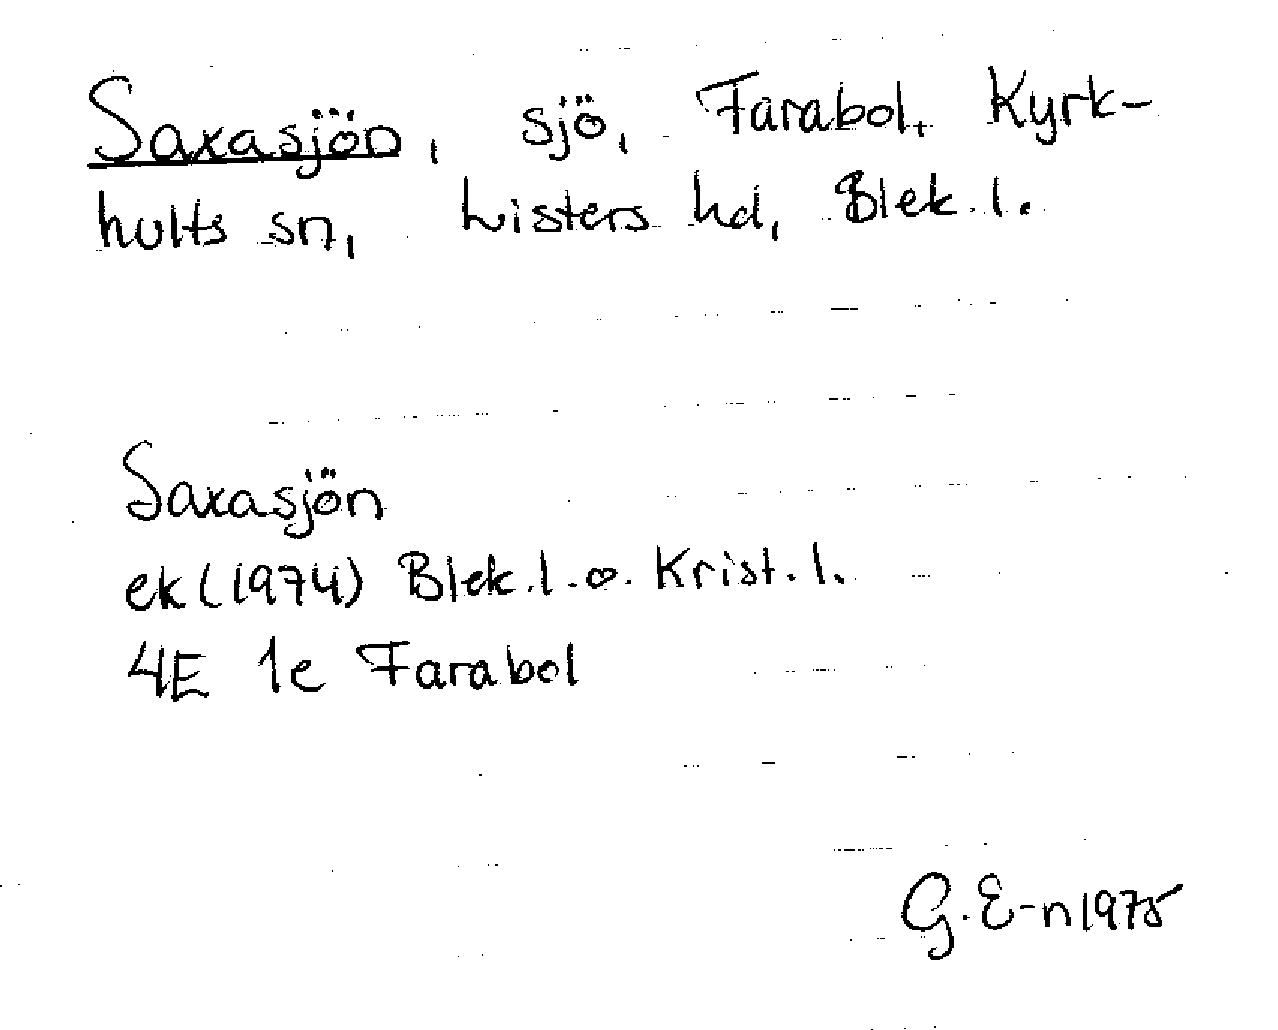 Saxasjön, sjö, Farabol, Kyrk-
hults sn, Listers hd, Blek. l.
Saxasjön
ek (1974) Blek. l. o. Krist. l.
4E 1e Farabol
G. E-n 1975